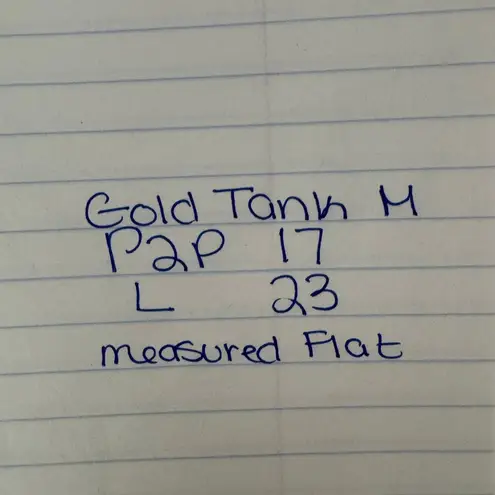 Gold Tank M
P2P 17
L 23
measured Flat